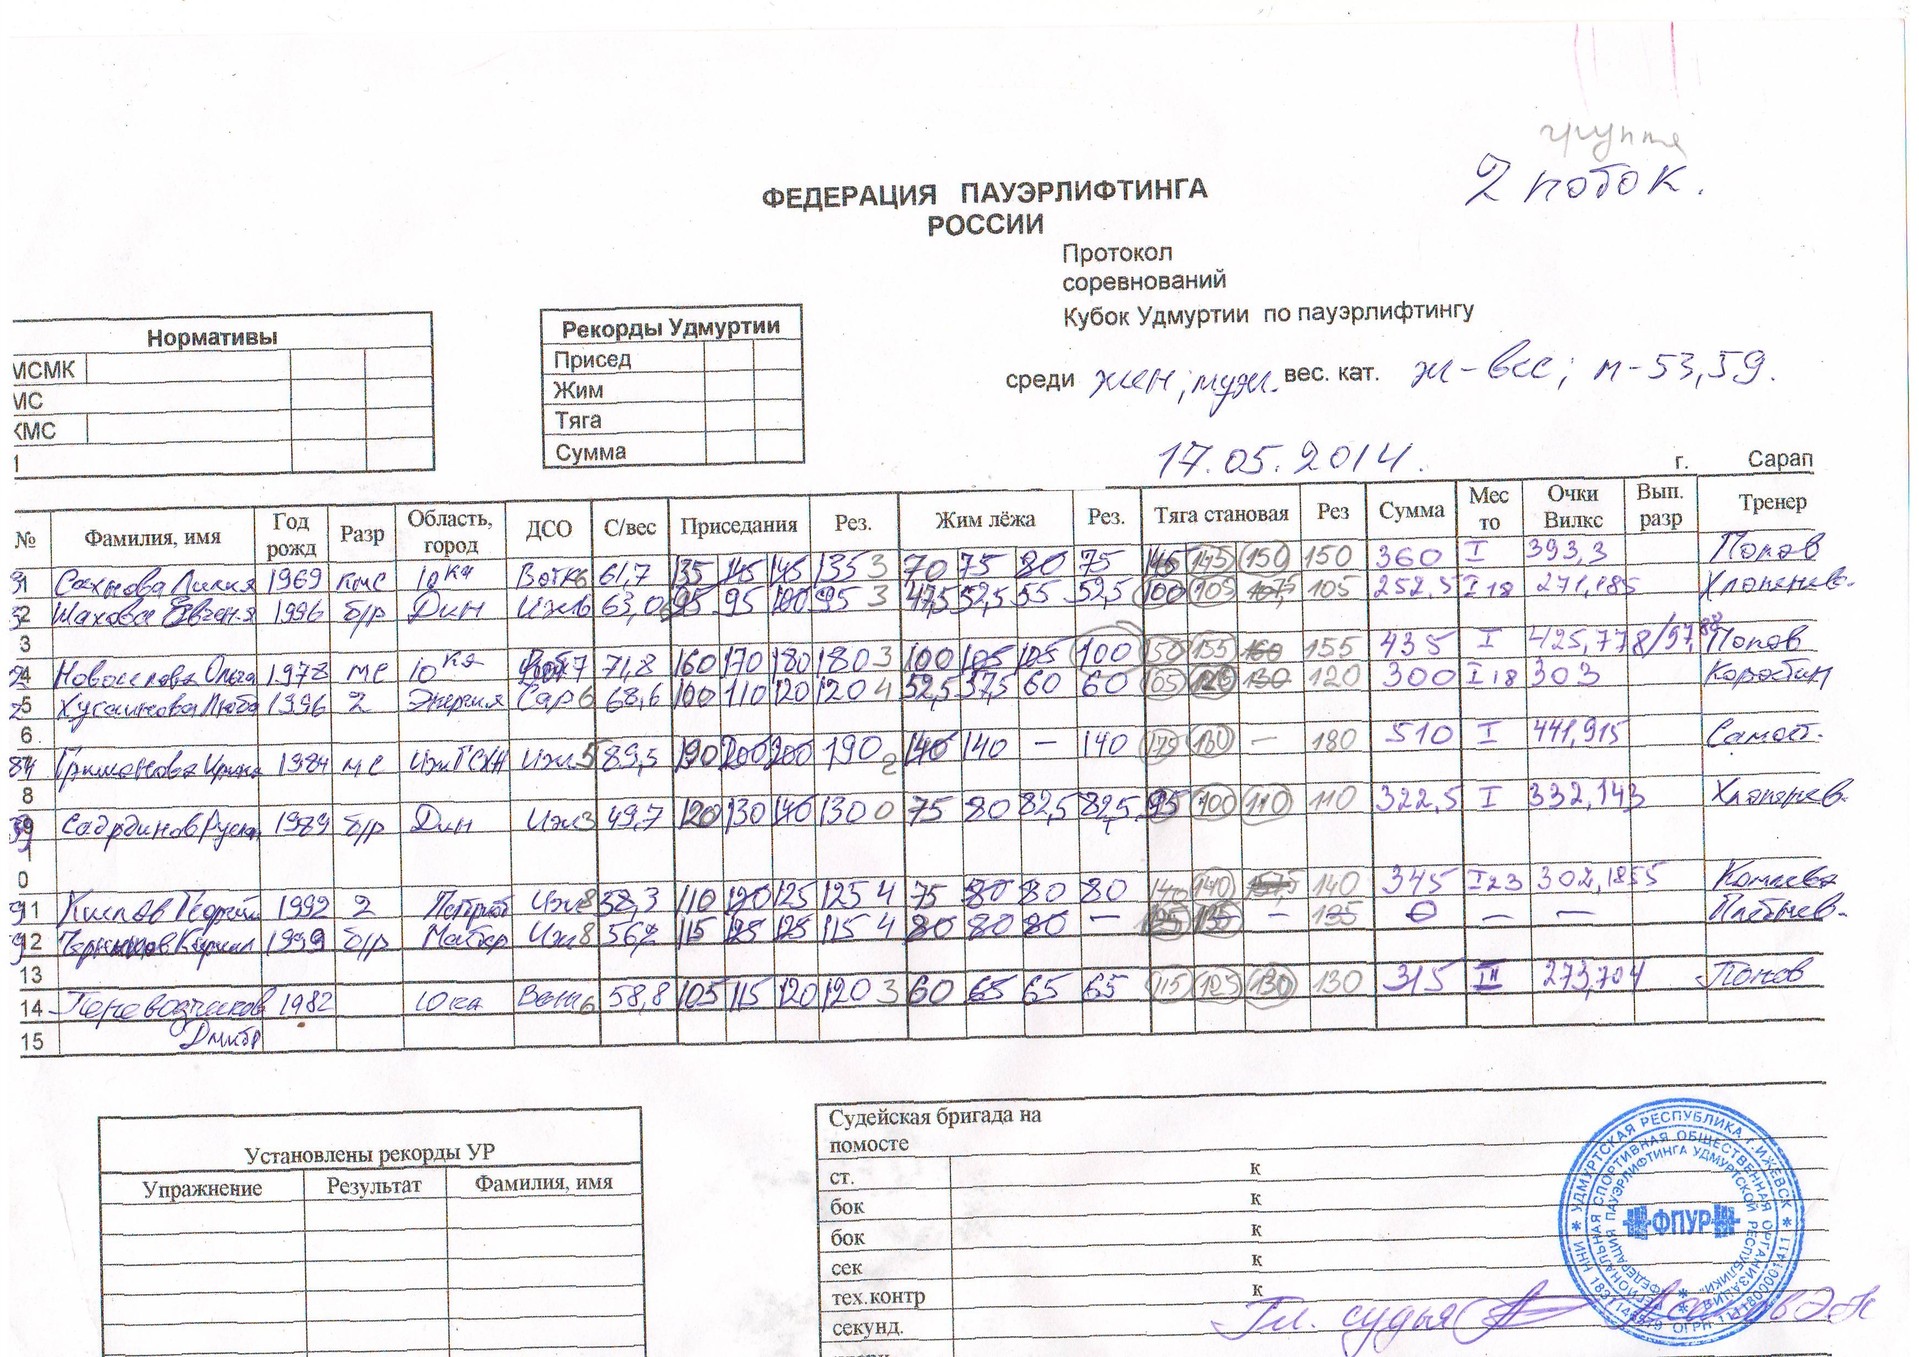 группа
2 поток.
ФЕДЕРАЦИЯ ПАУЭРЛИФТИНГА
РОССИИ
Протокол
соревнований
Кубок Удмуртии по пауэрлифтингу
среди жен; муж. вес. кат. ж-все; м-53,59.
17.05.2014. г. Сарап
Нормативы
МСМК
МС
КМС
1
Рекорды Удмуртии
Присед
Жим
Тяга
Сумма
№ Фамилия, имя Год рожд Разр Область, город ДСО С/вес Приседания Рез. Жим лёжа Рез. Тяга становая Рез Сумма Мес то Очки Вилкс Вып. разр Тренер
1 1969 кмс Юка Вотк 61,7 135 145 145 135 3 70 75 80 75 145 145 150 150 360 I 393,3 Попов
2 Шахова Евгения 1996 б/р Дин Иж 63,0 95 95 100 95 3 47,5 52,5 55 52,5 100 105 107,5 105 252,5 I 18 271,185
3
4 Новоселова Ольга 1978 мс Юка 71,8 160 170 180 180 3 100 105 105 100 150 155 160 155 435 I 425,778/ Попов
5 Хусаинова Люба 1996 2 Энергия Сар 6 68,6 100 110 120 120 4 52,5 57,5 60 60 105 120 130 120 300 I 18 303
6.
7 Ирина 1984 мс ИжГСХА Иж 5 89,5 190 200 200 190 2 140 140 — 140 175 180 — 180 510 I 441,915 Самост.
8
9 1989 б/р Дин Иж 3 49,7 120 130 140 130 0 75 80 82,5 82,5 95 100 110 110 322,5 I 332,143
1
0
11 Кислов Георгий 1992 2 Иж 8 58,3 110 120 125 125 4 75 80 80 80 140 140 157,5 140 345 I 23 302,1855
12 Кирилл 1999 б/р Иж 8 115 125 125 115 4 80 80 80 — 125 135 — 135 0 — —
13
14 Перевозчиков 1982 Юка 58,8 105 115 120 120 3 60 65 65 65 115 125 130 130 315 II 273,704 Попов
15 Дмитр
Установлены рекорды УР
Упражнение Результат Фамилия, имя
Судейская бригада на
помосте
ст. к
бок к
бок к
сек к
тех.контр к
секунд.
Гл. судья
УДМУРТСКАЯ РЕСПУБЛИКА, г. ИЖЕВСК
РЕГИОНАЛЬНАЯ СПОРТИВНАЯ ОБЩЕСТВЕННАЯ ОРГАНИЗАЦИЯ
ФЕДЕРАЦИЯ ПАУЭРЛИФТИНГА УДМУРТСКОЙ РЕСПУБЛИКИ
ФПУР